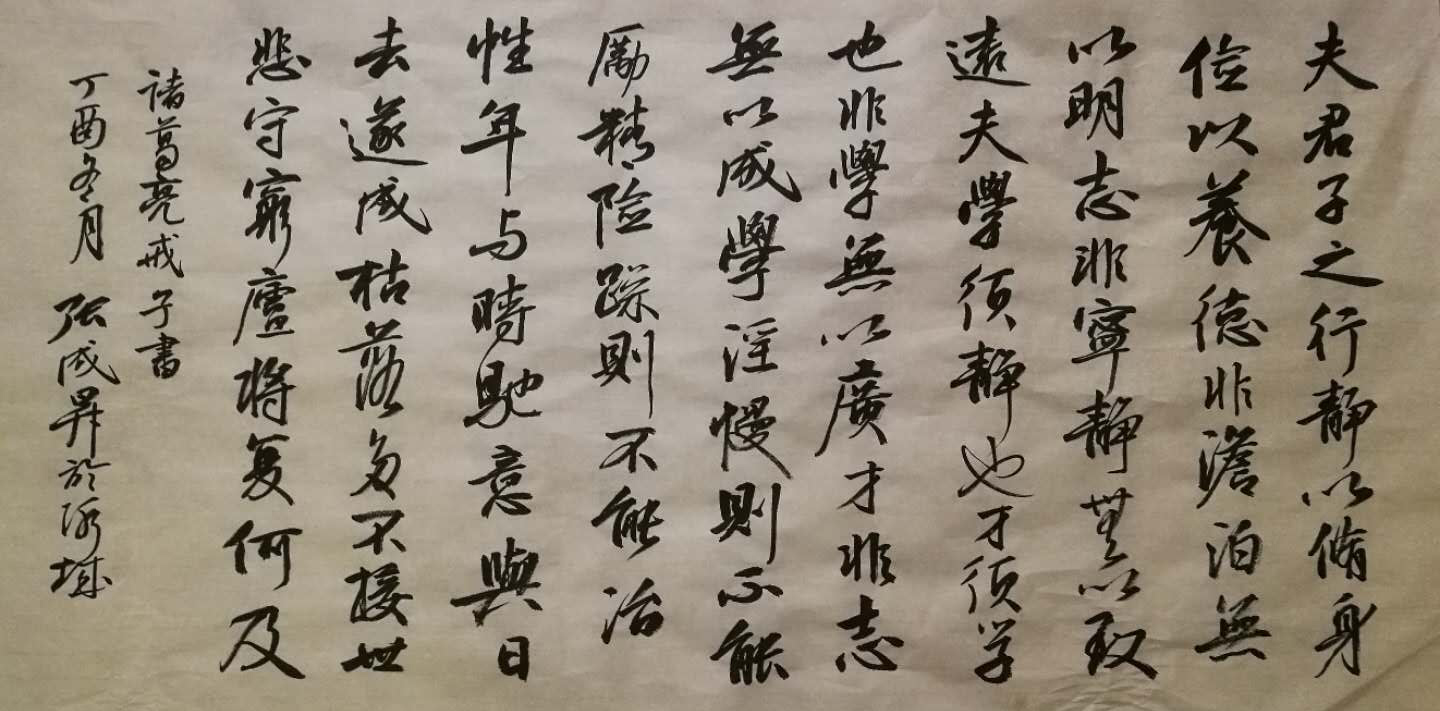 夫君子之行靜以脩身
儉以養德非澹泊無
以明志非寧靜無以致
遠夫學須靜也才須学
也非學無以廣才非志
無以成學淫慢則不能
勵精險躁則不能治
性年与時馳意與日
去遂成枯落多不接世
悲守窮廬將复何及
諸葛亮戒子書
丁酉冬月 張成昇於